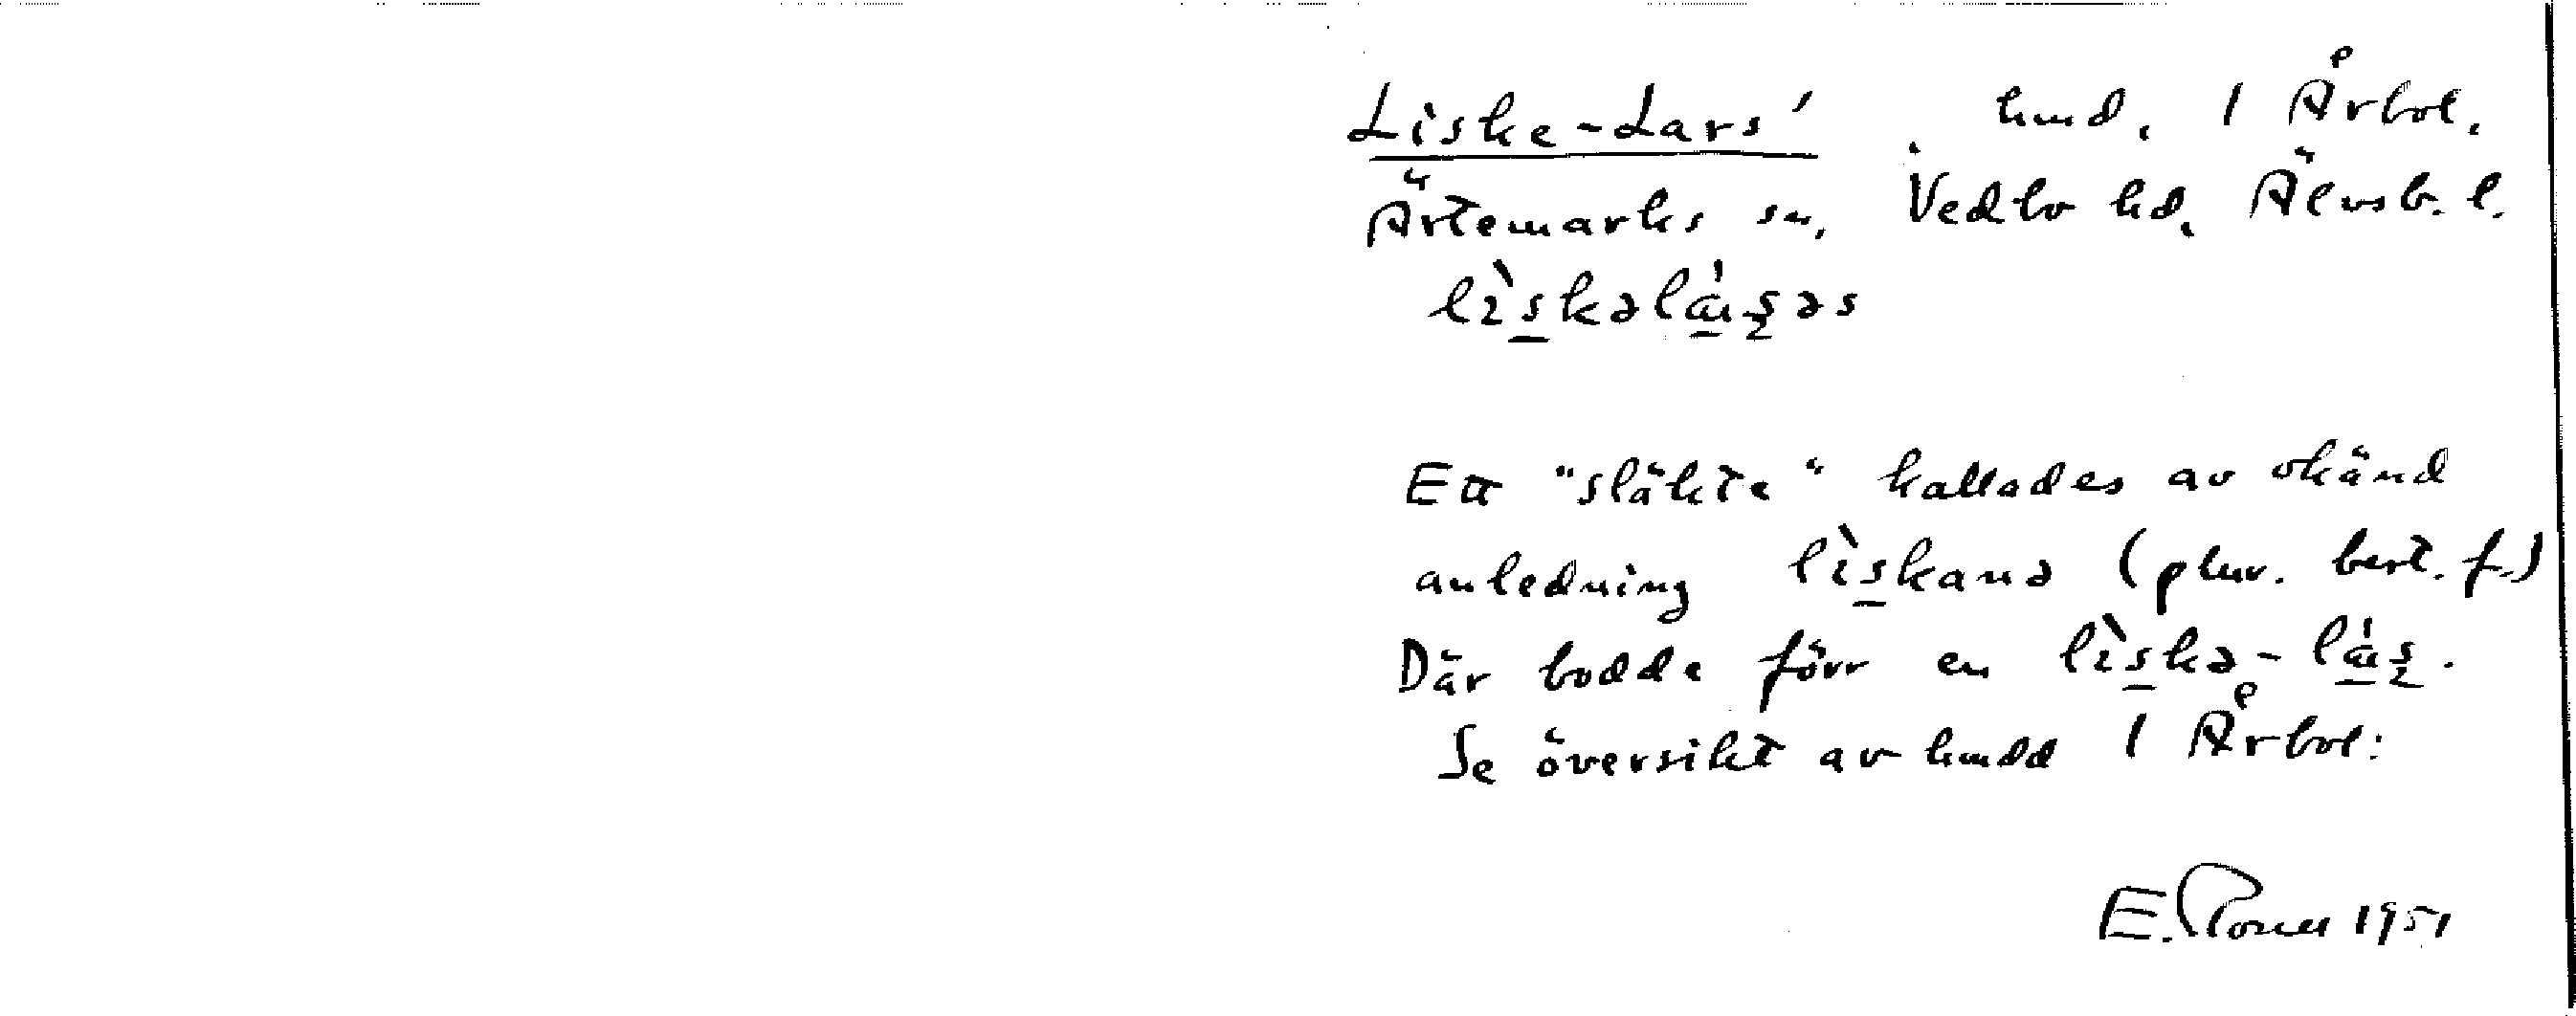 Liske-Lars' hmd. 1 Årbol.
Ärtemarks sn, Vedbo hd. Älvsb. l.
lìskəláșəs
Ett "släkte" kallades av okänd
anledning lìskanə (plur. best. f.)
Där bodde förr en lìskə-láș.
Se översikt av hmdd 1 Årbol:
E. 1951